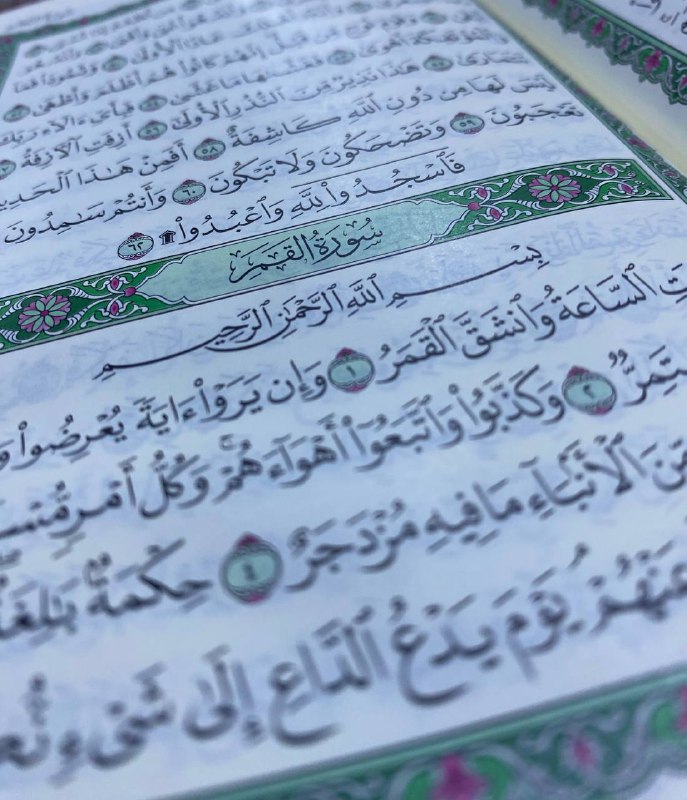 قَبْلُ إِنَّهُمْ كَانُوا۟ هُمْ أَظْلَمَ وَأَطْغَىٰ
أَهْوَىٰ ٥٣ فَغَشَّىٰهَا مَا غَشَّىٰ ٥٤ فَبِأَيِّ ءَالَآءِ رَبِّكَ
هَٰذَا نَذِيرٌ مِّنَ ٱلنُّذُرِ ٱلْأُولَىٰٓ ٥٦ أَزِفَتِ ٱلْءَازِفَةُ
لَيْسَ لَهَا مِن دُونِ ٱللَّهِ كَاشِفَةٌ ٥٨ أَفَمِنْ هَٰذَا
تَعْجَبُونَ ٥٩ وَتَضْحَكُونَ وَلَا تَبْكُونَ ٦٠ وَأَنتُمْ سَٰمِدُونَ
فَٱسْجُدُوا۟ لِلَّهِ وَٱعْبُدُوا۟ ۩ ٦٢
سُورَةُ القَمَرِ
بِسْمِ ٱللَّهِ ٱلرَّحْمَٰنِ ٱلرَّحِيمِ
ٱلسَّاعَةُ وَٱنشَقَّ ٱلْقَمَرُ ١ وَإِن يَرَوْا۟ ءَايَةً يُعْرِضُوا۟
٢ وَكَذَّبُوا۟ وَٱتَّبَعُوٓا۟ أَهْوَآءَهُمْ ۚ وَكُلُّ أَمْرٍ
ٱلْأَنۢبَآءِ مَا فِيهِ مُزْدَجَرٌ ٤ حِكْمَةٌۢ بَٰلِغَةٌ
عَنْهُمْ ۘ يَوْمَ يَدْعُ ٱلدَّاعِ إِلَىٰ شَىْءٍ